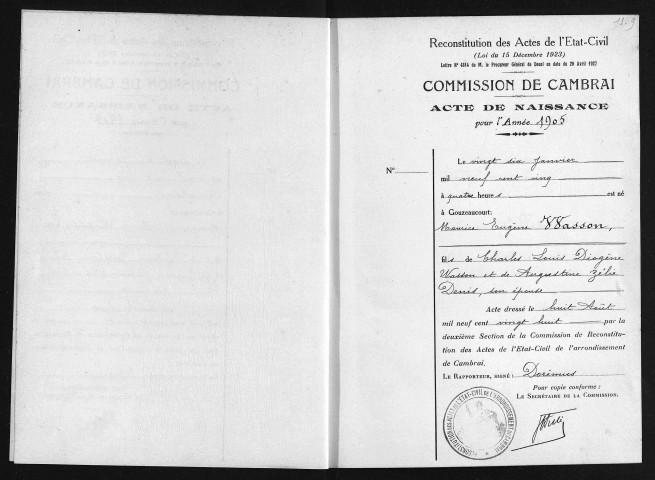 Reconstitution des Actes de l'Etat-Civil
(Loi du 15 Décembre 1923)
Lettre N° 4814 de M. le Procureur Général de Douai en date du 20 Avril 1927
COMMISSION DE CAMBRAI
ACTE DE NAISSANCE
pour l'Année 1905
N°
Le vingt six Janvier
mil neuf cent cinq
à quatre heures est né
à Gouzeaucourt:
Maurice Eugène Wasson,
fils de Charles Louis Diogène
Wasson et de Augustine Zélie
Denis, son épouse
Acte dressé le huit Août
mil neuf cent vingt huit par la
deuxième Section de la Commission de Reconstitu-
tion des Actes de l'Etat-Civil de l'arrondissement
de Cambrai.
LE RAPPORTEUR, SIGNÉ: Dorémus
Pour copie conforme:
LE SECRÉTAIRE DE LA COMMISSION.